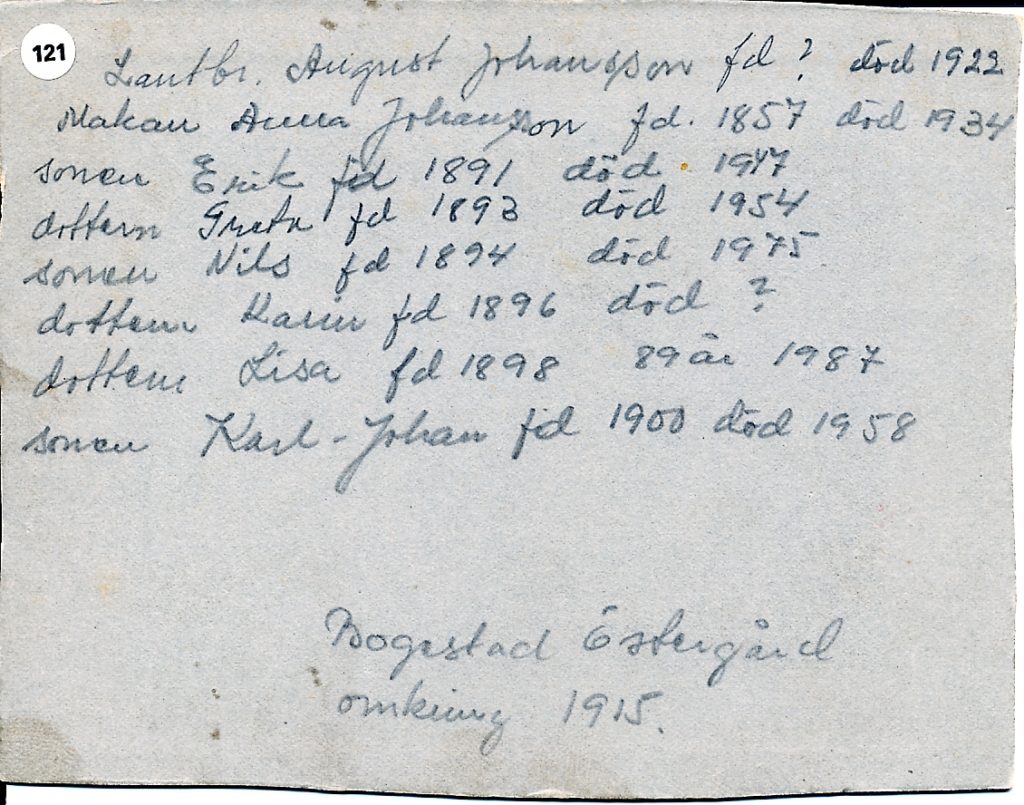 121
Lantbr. August Johansson fd ? död 1922
Makan Anna Johansson fd. 1857 död 1934
sonen Erik fd 1891 död 1947
dottern Greta fd 1893 död 1954
sonen Nils fd 1894 död 1975
dottern Karin fd 1896 död ?
dottern Lisa fd 1898 89 år 1987
sonen Karl-Johan fd 1900 död 1958
Bogestad Östergård
omkring 1915.